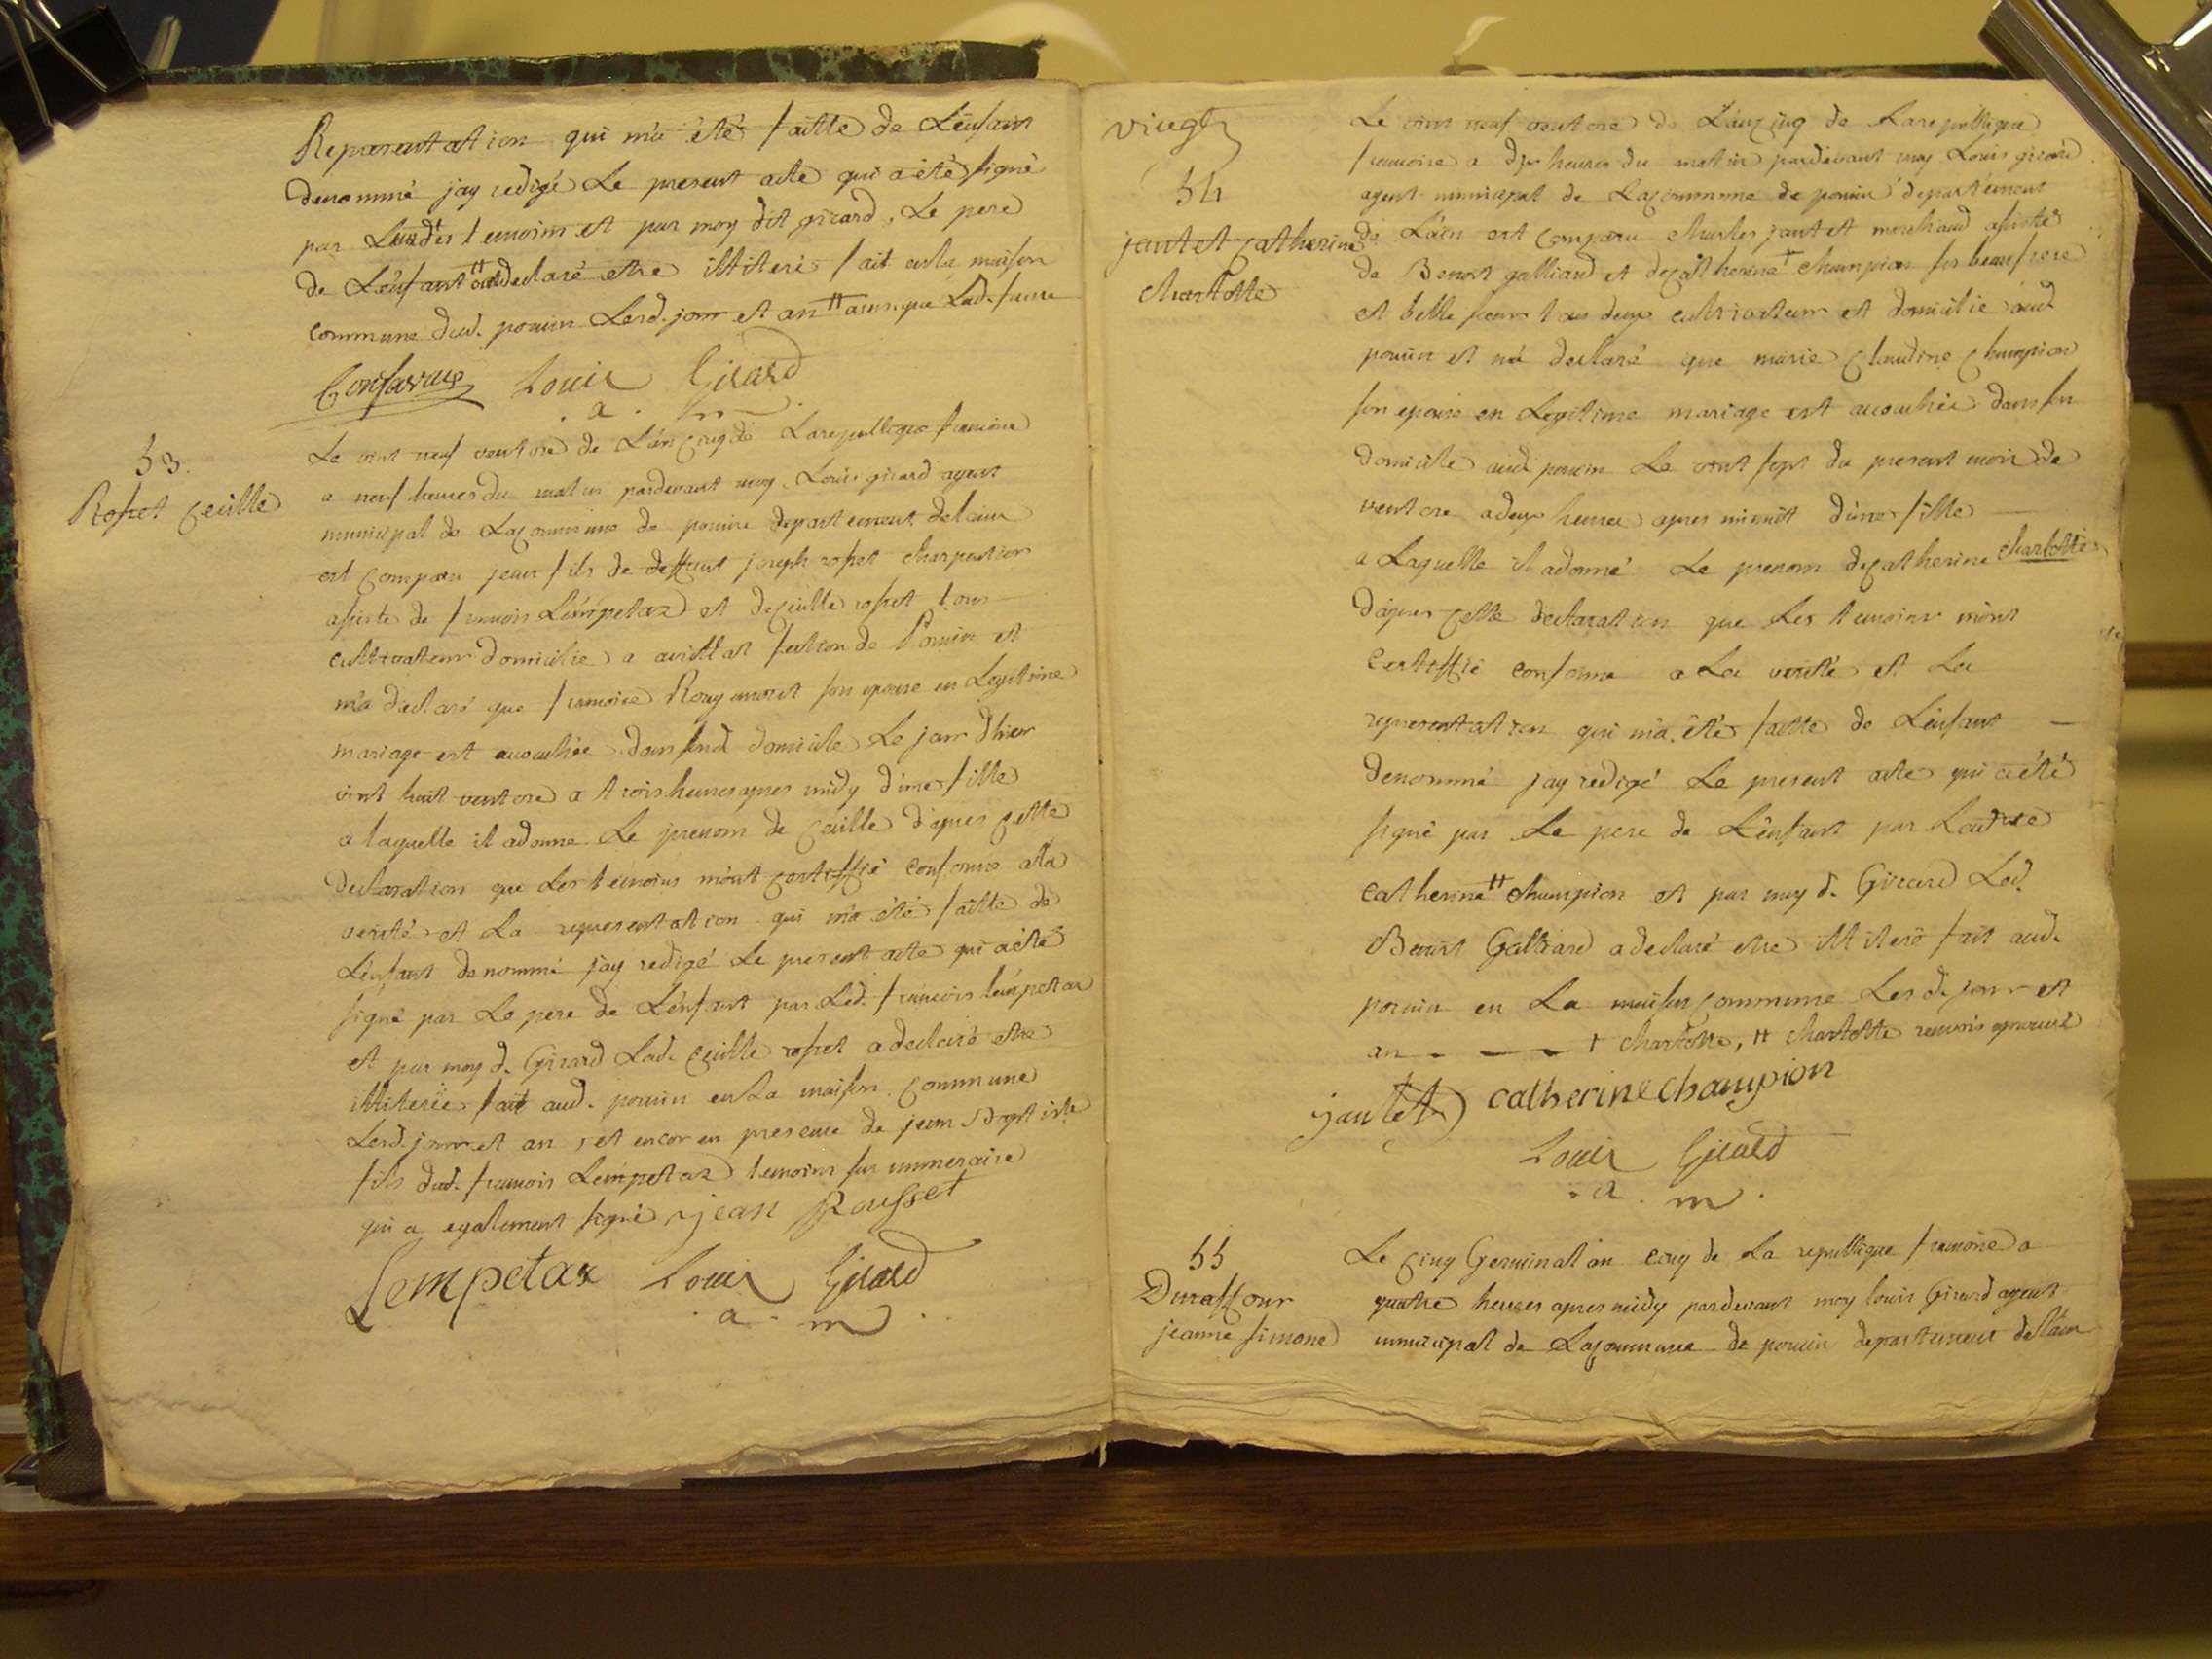 Representation qui m'a été faitte de L'enfant
denommé jay redigé Le present acte qui a été signé
par Lesdts temoins et par moy dit girard, Le pere
de L'enfant †† a declaré etre illiteré fait en la maison
commune dud. poncin Lesd. jour et an †† ainsi que Lad. femme
Louis Girard
. a . m .
53.
Rosset Cecille
Le vint neuf ventose de L'an cinq de La republique francoise
a neuf heures du matin pardevant moy Louis girard agent
municipal de La commune de poncin departement de lain
est comparu jean fils de deffunt joseph rosset charpentier
assisté de francois Lempetaz et de cecille rosset tous
cultivateur domicilié a avillat section de Poncin et
m'a declaré que francoise Rougemont son epouse en Legitime
mariage est accouchée dans sond domicile Le jour d'hier
vint huit ventose a trois heures apres midy d'une fille
a laquelle il a donné Le prenom de cecille d'apres cette
declaration que Les temoins m'ont certiffié conforme a la
verité et La representation qui m'a été faitte de
L'enfant denommé j'ay redigé Le present acte qui a été
signé par Le pere de L'enfant par Led. francois lempetaz
et par moy d. Girard Lad. cecille rosset a declaré etre
illiterée fait aud. poncin en La maison commune
Lesd. jour et an, et encor en presence de jean Baptiste
fils dud. francois Lempetaz temoins sur numeraire
qui a egalement signé jean Rousset
Lempetaz Louis Girard
. a . m .
vingt
54
jantet catherine
charlotte
Le vint neuf ventose de L'an cinq de La republique
francoise a dix heures du matin pardevant moy Louis girard
agent municipal de La commune de poncin departement
de L'ain est comparu charles jantet marchand assisté
de Benoit galliard et de catherine † champion ses beau frere
et belle soeur tous deux cultivateur et domicilié aud
poncin et m'a declaré que marie claudine champion
son epouse en Legitime mariage est accouchée dans son
domicile aud poncin Le vint sept du present mois de
ventose a deux heures apres minuit d'une fille
a Laquelle il a donné Le prenom de catherine charlotte
d'apres cette declaration que Les temoins m'ont
certiffié conforme a La verité et La
representation qui m'a été faitte de L'enfant
denommé jay redigé Le present acte qui a été
signé par Le pere de L'enfant par Ladite
catherine †† champion et par moy d. Girard Led.
Benoit Galliard a declaré etre illiteré fait aud.
poncin en La maison commune Lesd. jour et
an - — † charlotte, †† charlotte renvois aprouvé
jantet catherine champion
Louis Girard
. a . m .
55
Duraffour
jeanne simone
Le cinq Germinal an cinq de La republique francoise a
quatre heures apres midy pardevant moy louis Girard agent
municipal de La commune de poncin departement de l'ain